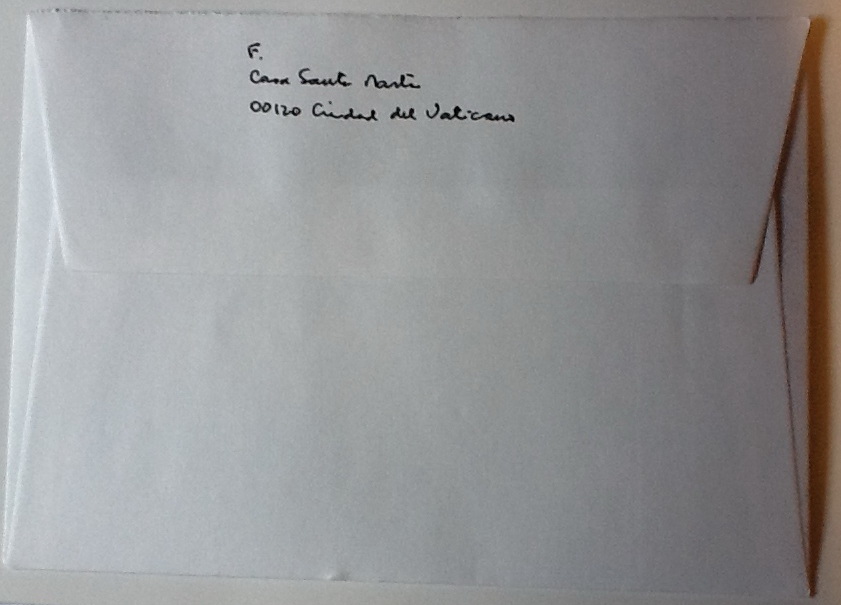 F.
Casa Santa Marta
00120 Ciudad del Vaticano